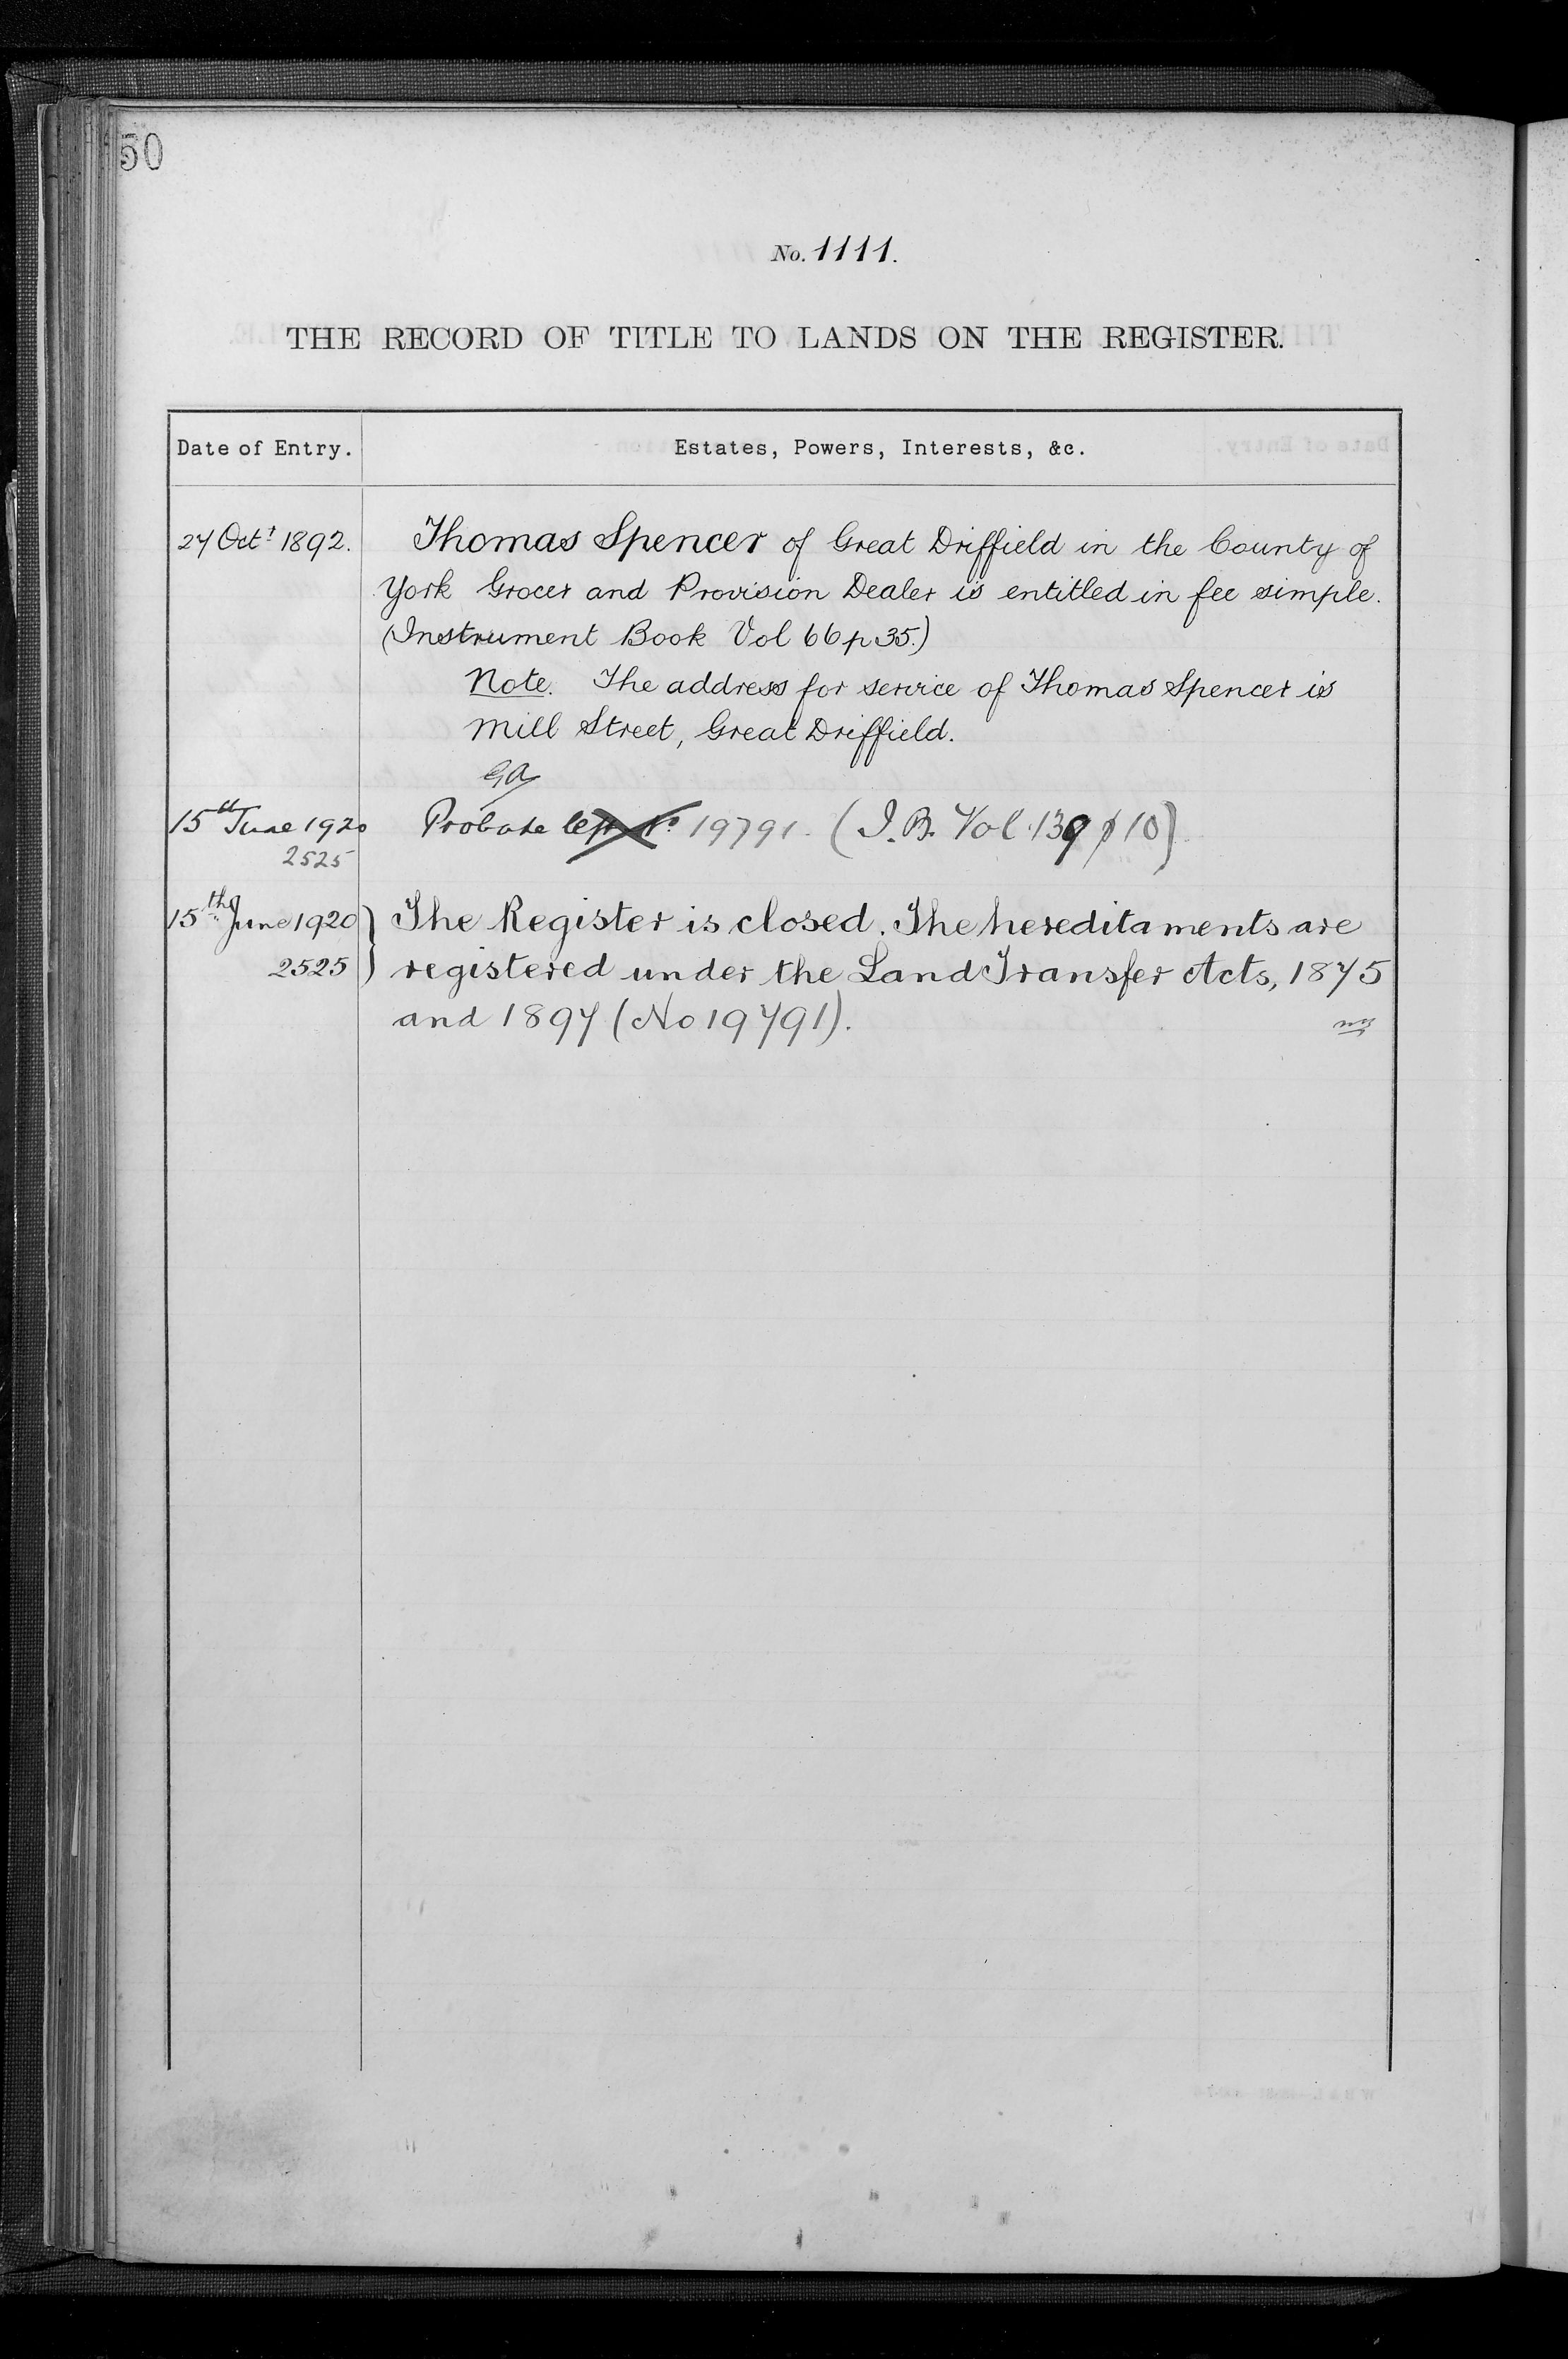 50
No. 1111.
THE RECORD OF TITLE TO LANDS ON THE REGISTER.
Date of Entry. Estates, Powers, Interests, &c.
27 Oct.r 1892. Thomas Spencer of Great Driffield in the County of
York Grocer and Provision Dealer is entitled in fee simple.
(Instrument Book Vol 66 p 35.)
Note. The address for service of Thomas Spencer is
Mill Street, Great Driffield.
15th June 1920 Probate left No 19791. (I.B. Vol. 139 p 10)
2525
15th June 1920 } The Register is closed. The hereditaments are
2525 } registered under the Land Transfer Acts, 1875
and 1897 (No 19791).